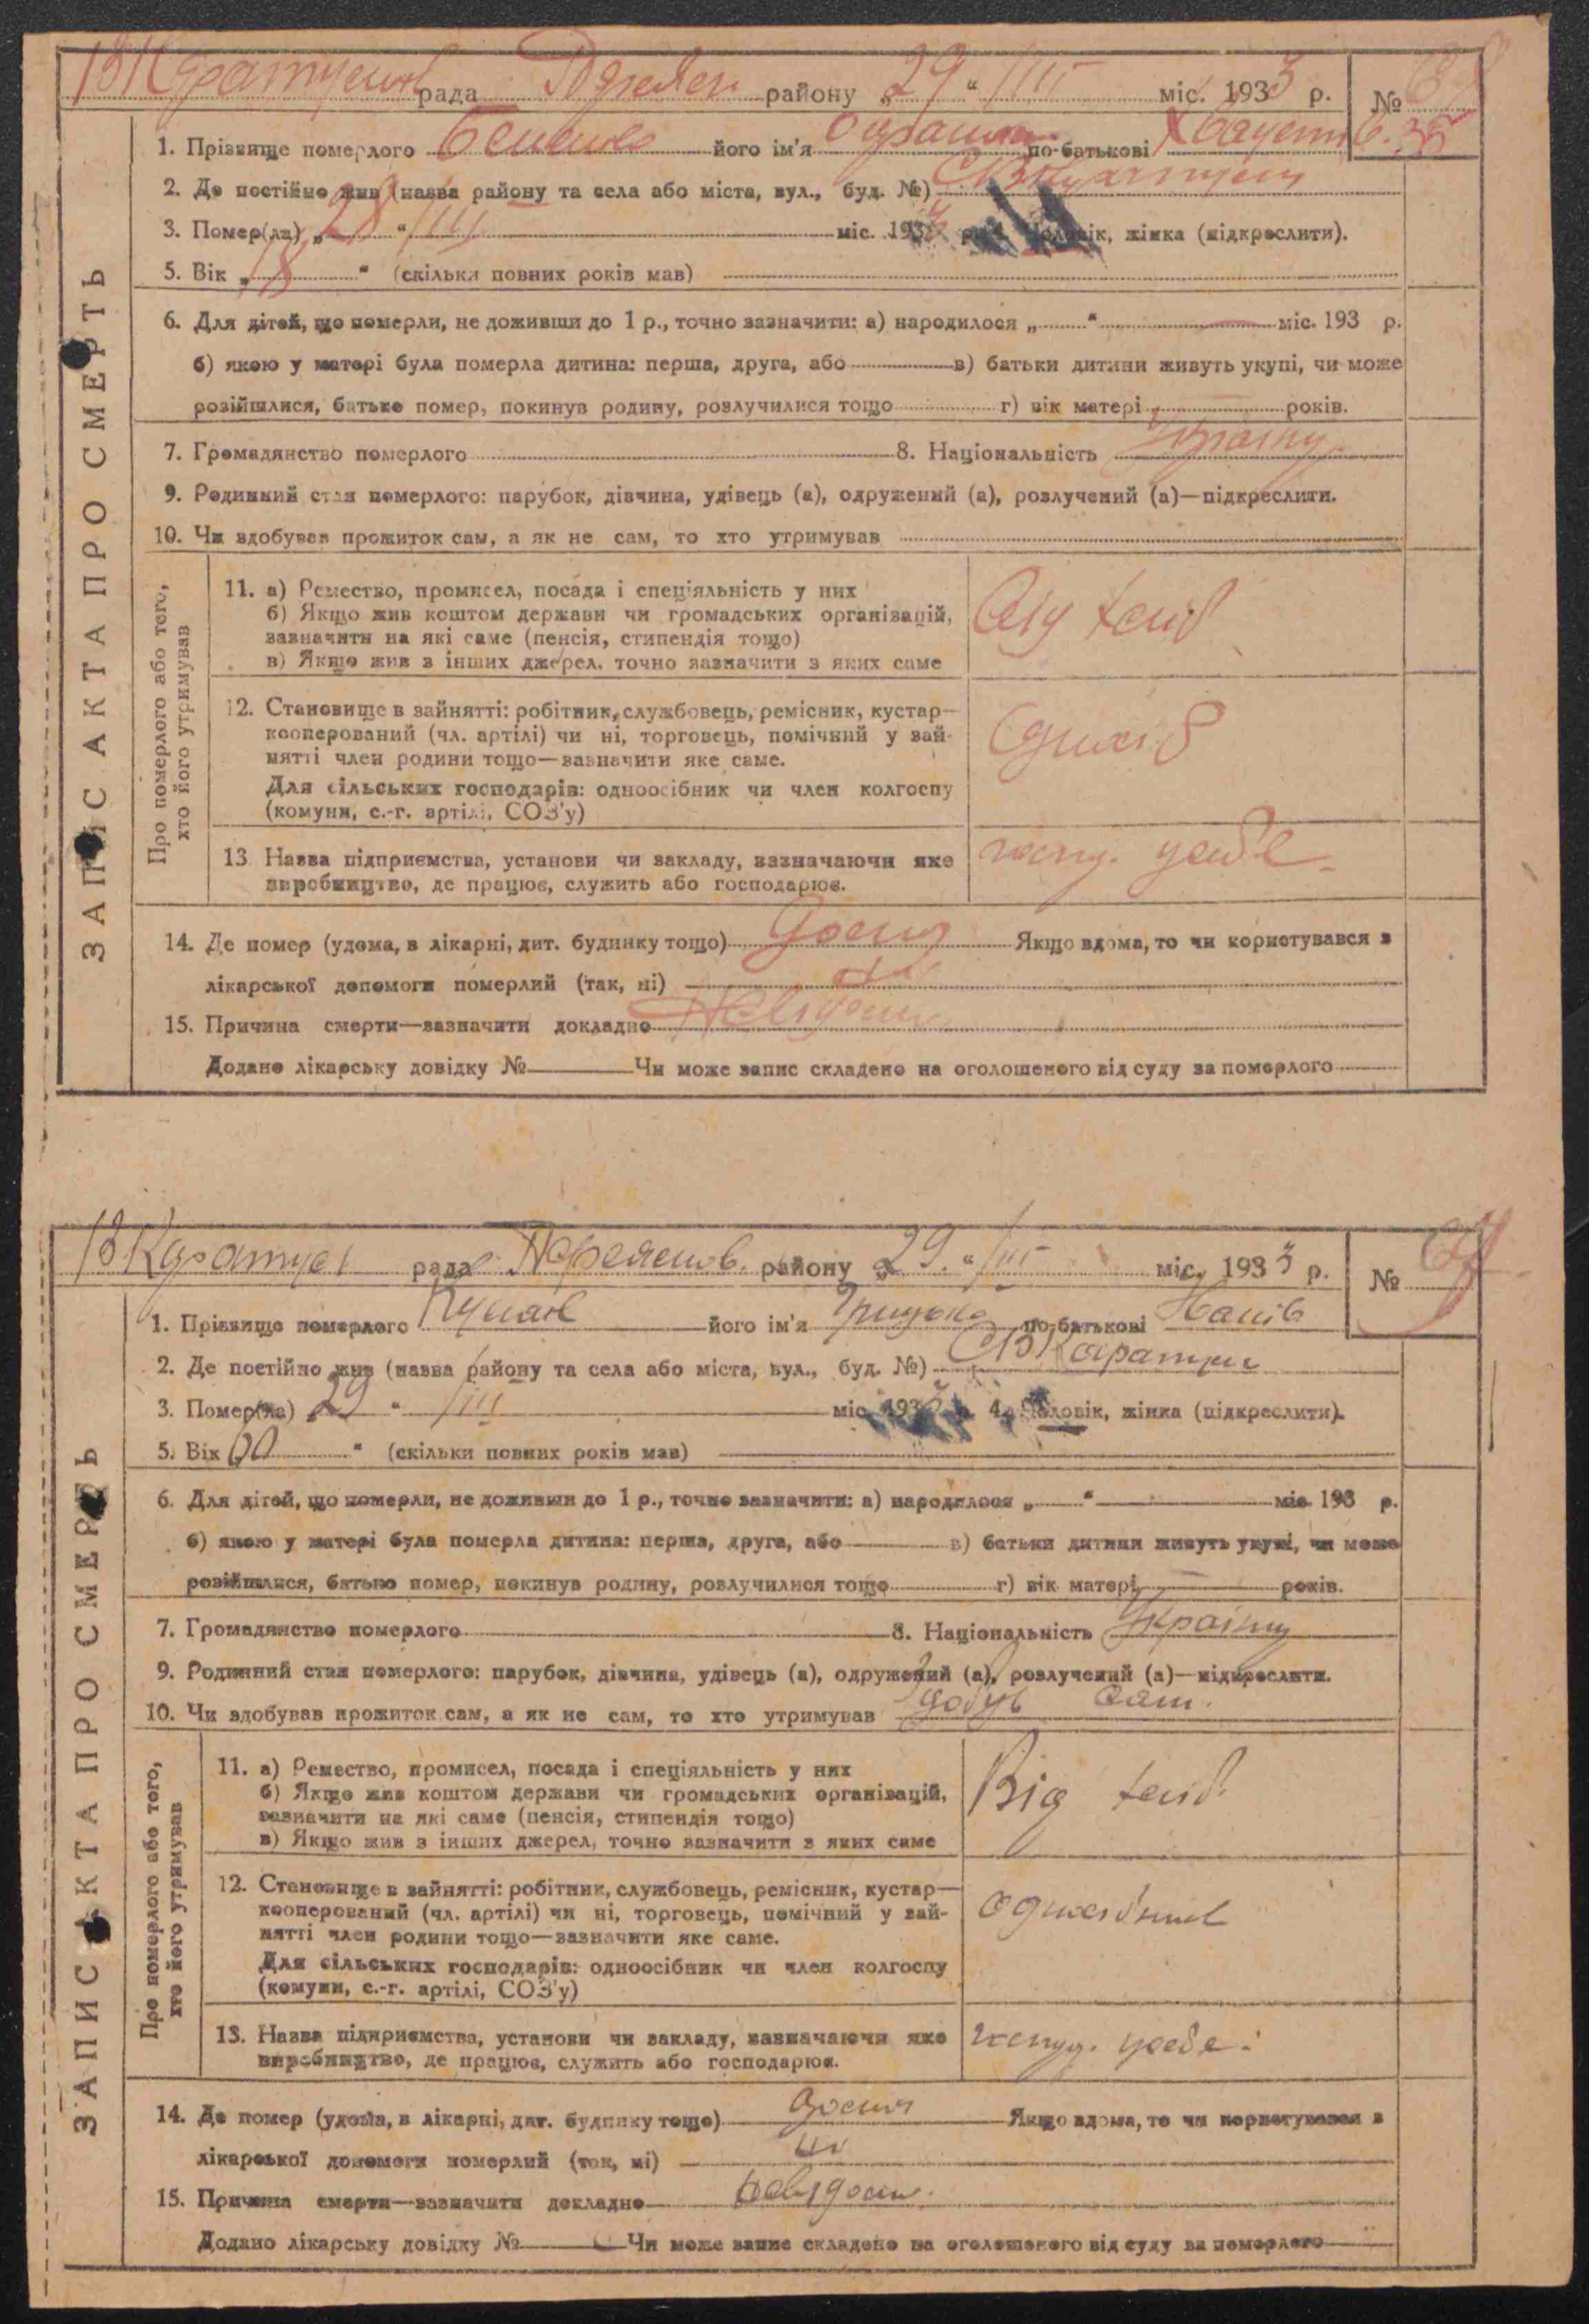 ЗАПИС АКТА ПРО СМЕРТЬ
рада району „29“ III міс. 1933 р. №
1. Прізвище померлого його ім'я по-батькові
2. Де постійно жив (назва району та села або міста, вул., буд. №)
3. Помер(ла) „28“ III міс. 1933 р. 4. Чоловік, жінка (підкреслити).
5. Вік „18“ (скільки повних років мав)
6. Для дітей, що померли, не доживши до 1 р., точно зазначити: а) народилося „ “ міс. 193 р.
б) якою у матері була померла дитина: перша, друга, або в) батьки дитини живуть укупі, чи може
розійшлися, батько помер, покинув родину, розлучилися тощо г) вік матері років.
7. Громадянство померлого 8. Національність Україн
9. Родинний стан померлого: парубок, дівчина, удівець (а), одружений (а), розлучений (а)—підкреслити.
10. Чи здобував прожиток сам, а як не сам, то хто утримував
Про померлого або того, хто його утримував
11. а) Ремество, промисел, посада і спеціяльність у них
б) Якщо жив коштом держави чи громадських організацій,
зазначити на які саме (пенсія, стипендія тощо)
в) Якщо жив з інших джерел, точно зазначити з яких саме
12. Становище в зайнятті: робітник, службовець, ремісник, кустар—
кооперований (чл. артілі) чи ні, торговець, помічний у зай-
нятті член родини тощо—зазначити яке саме.
Для сільських господарів: одноосібник чи член колгоспу
(комуни, с.-г. артілі, СОЗ'у)
Одноосіб
13 Назва підприємства, установи чи закладу, зазначаючи яке
виробництво, де працює, служить або господарює.
14. Де помер (удома, в лікарні, дит. будинку тощо) Дома Якщо вдома, то чи користувався з
лікарської допомоги померлий (так, ні) ні
15. Причина смерти—зазначити докладно Невідома
Додано лікарську довідку № Чи може запис складено на оголошеного від суду за померлого
ЗАПИС АКТА ПРО СМЕРТЬ
рада району „29.“ III міс. 1933 р. №
1. Прізвище померлого його ім'я Грицько по-батькові
2. Де постійно жив (назва району та села або міста, вул., буд. №)
3. Помер(ла) 29 “ III міс. 1933 р. 4. Чоловік, жінка (підкреслити).
5. Вік 60 “ (скільки повних років мав)
6. Для дітей, що померли, не доживши до 1 р., точно зазначити: а) народилося „ “ міс. 193 р.
б) якою у матері була померла дитина: перша, друга, або в) батьки дитини живуть укупі, чи може
розійшлися, батько помер, покинув родину, розлучилися тощо г) вік матері років.
7. Громадянство померлого 8. Національність Україн
9. Родинний стан померлого: парубок, дівчина, удівець (а), одружений (а), розлучений (а)—підкреслити.
10. Чи здобував прожиток сам, а як не сам, то хто утримував здобув сам.
Про померлого або того, хто його утримував
11. а) Ремество, промисел, посада і спеціяльність у них
б) Якщо жив коштом держави чи громадських організацій,
зазначити на які саме (пенсія, стипендія тощо)
в) Якщо жив з інших джерел, точно зазначити з яких саме
Від
12. Становище в зайнятті: робітник, службовець, ремісник, кустар—
кооперований (чл. артілі) чи ні, торговець, помічний у зай-
нятті член родини тощо—зазначити яке саме.
Для сільських господарів: одноосібник чи член колгоспу
(комуни, с.-г. артілі, СОЗ'у)
одноосібник
13. Назва підприємства, установи чи закладу, зазначаючи яке
виробництво, де працює, служить або господарює.
14. Де помер (удома, в лікарні, дит. будинку тощо) дома Якщо вдома, то чи користувався з
лікарської допомоги померлий (так, ні) ні
15. Причина смерти—зазначити докладно невідом.
Додано лікарську довідку № Чи може запис складено на оголошеного від суду за померлого